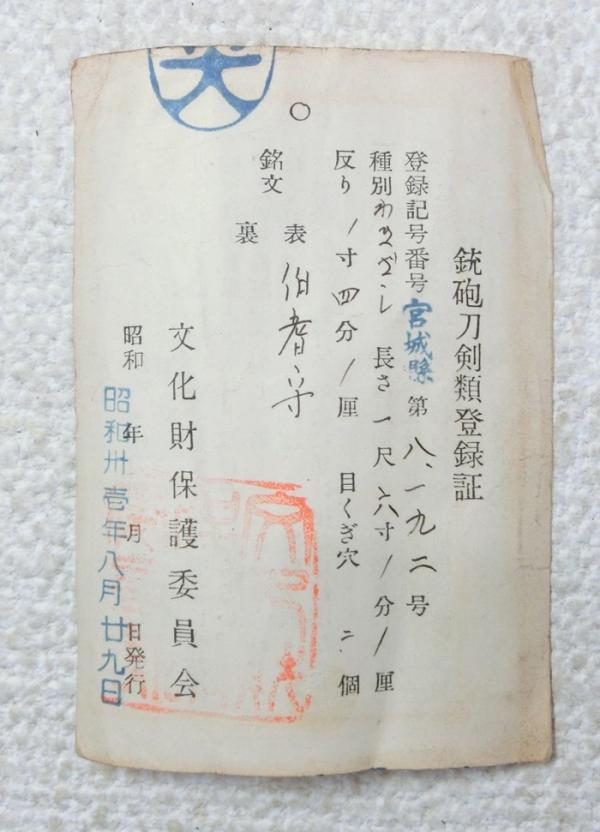 銃砲刀剣類登録証
登録記号番号 宮城縣 第 八、一九二 号
種別 わきざし 長さ 一 尺 六 寸 / 分 / 厘
反り / 寸 四 分 / 厘 目くぎ穴 二 個
銘文 表 伯耆守
裏
文化財保護委員会
昭和 年 月 日発行
昭和卅壱年八月廿九日